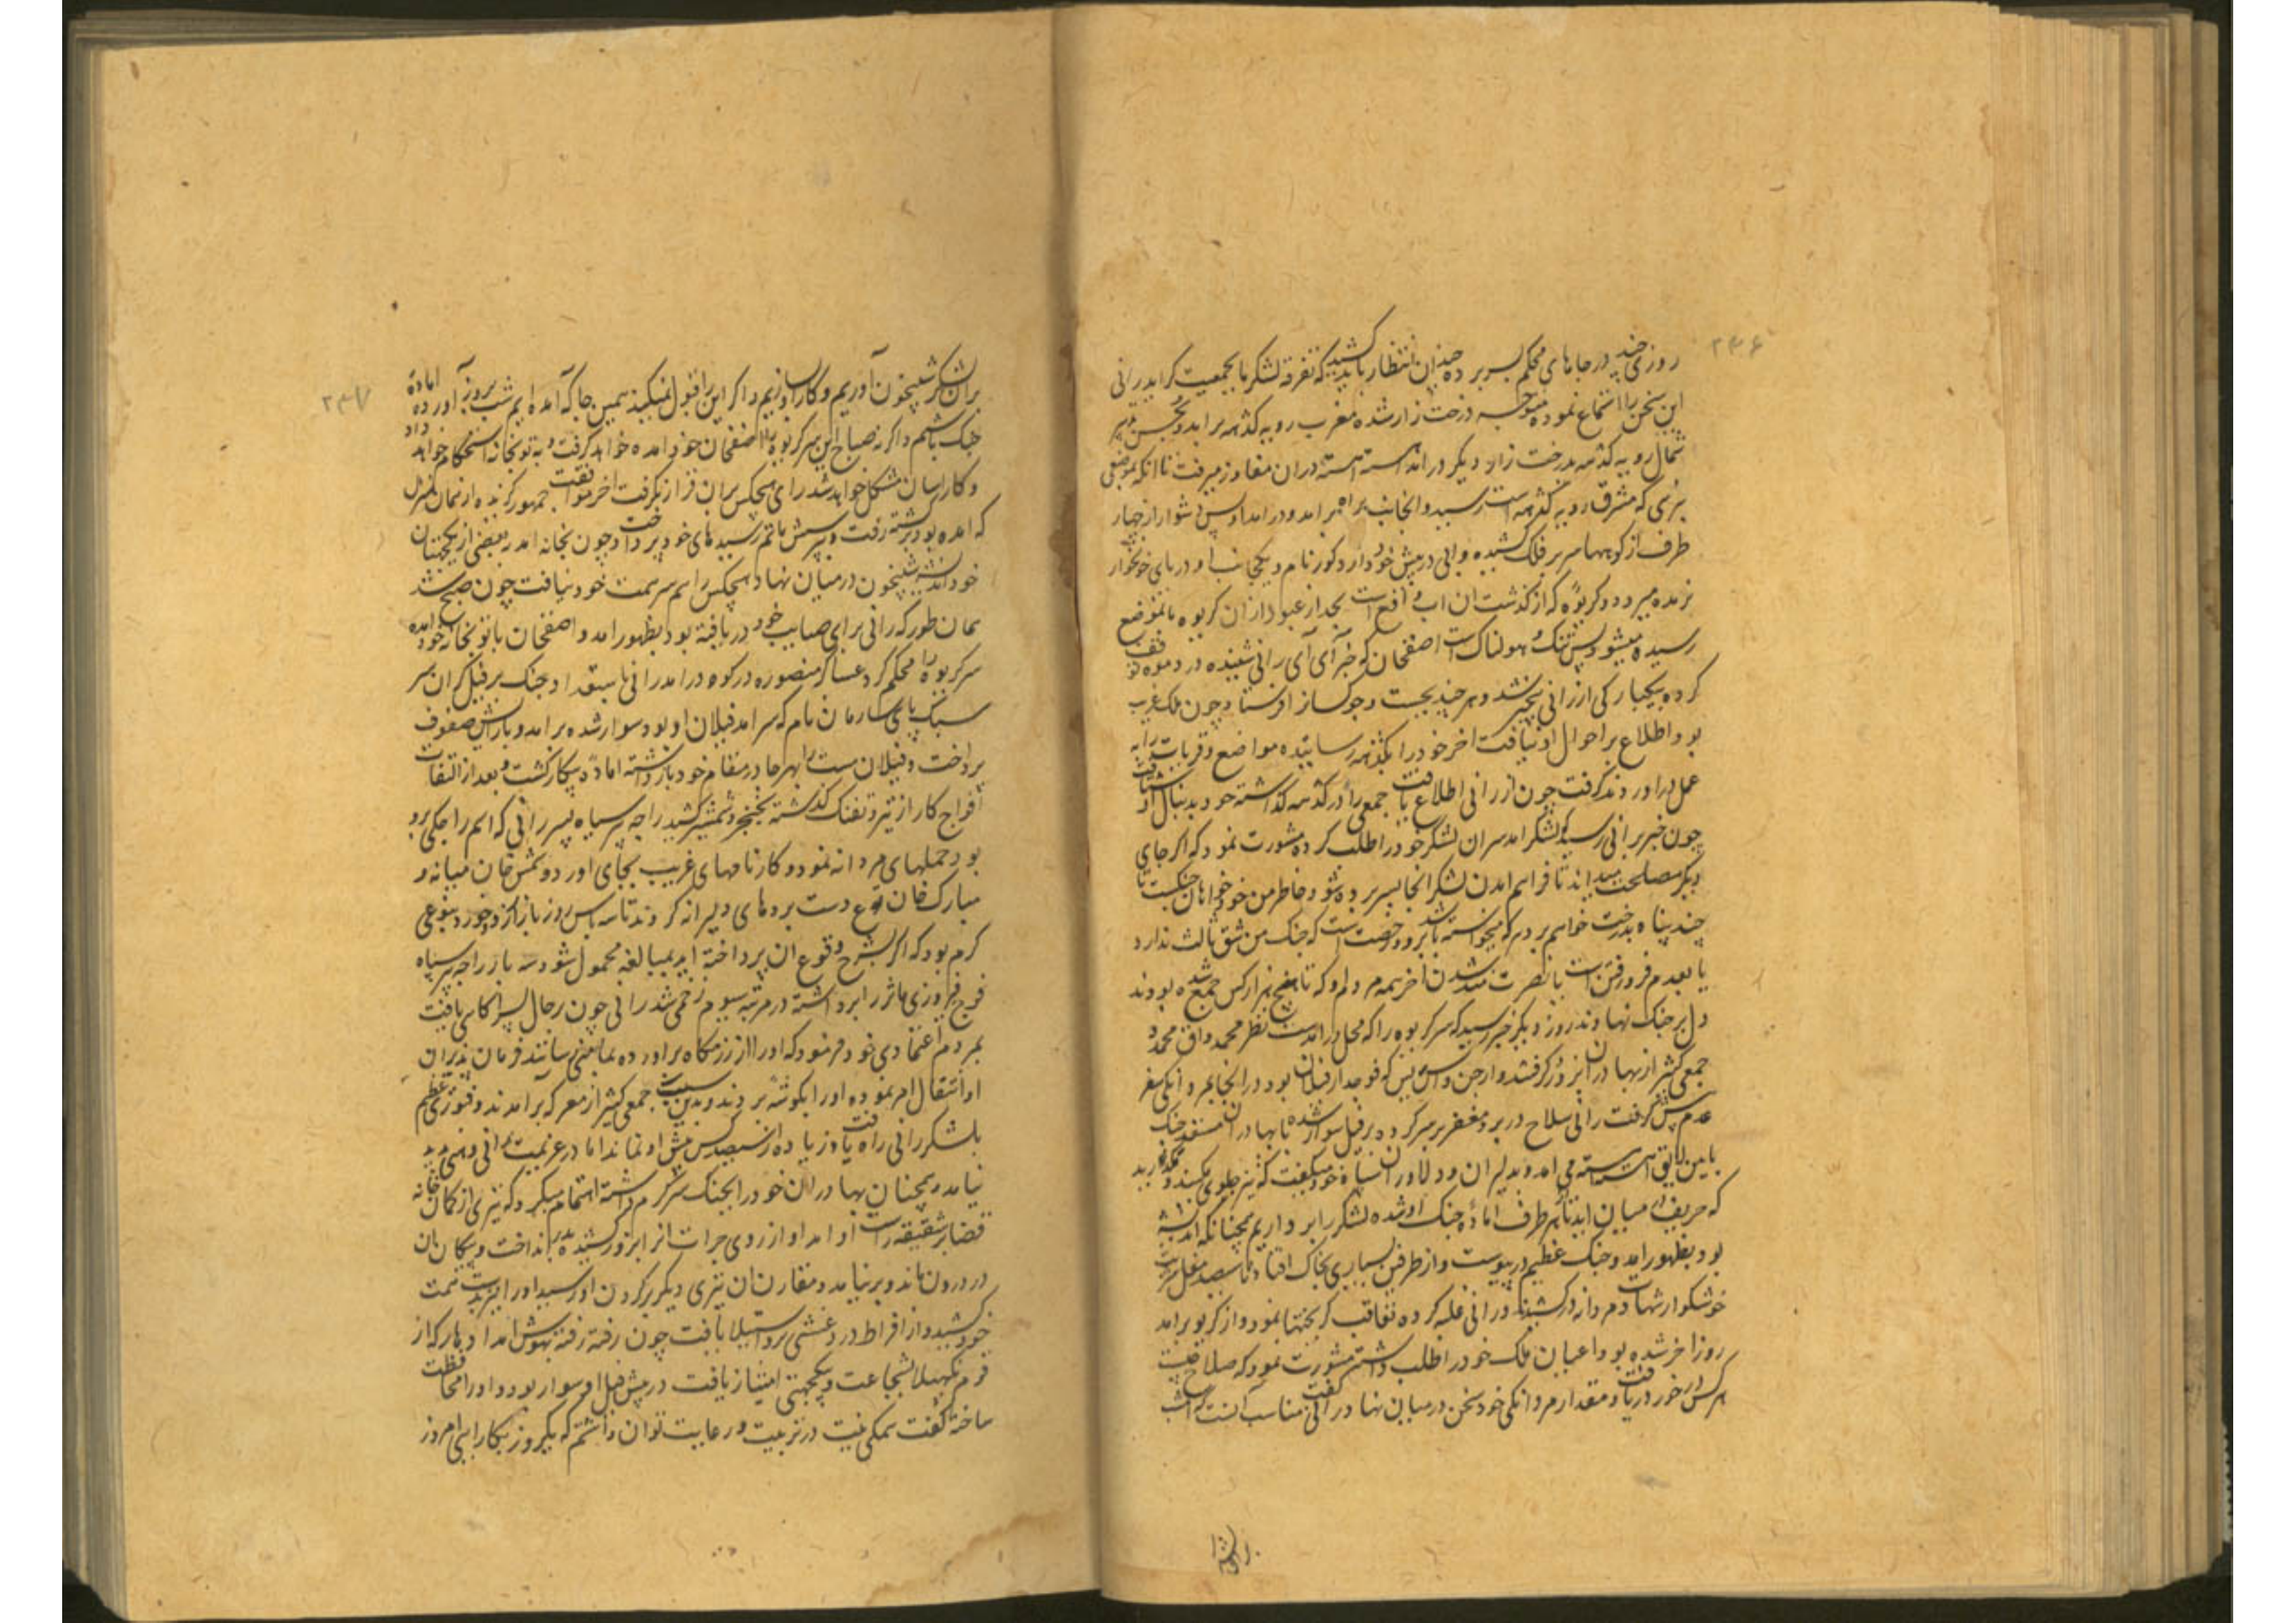 ۲۳۶
روزی چند در جاهای محکم بسر برده چندان انتظار باید کشید که تفرقه لشکر ما بجمعیت گراید رانی
این سخن را استماع نموده متوجه درخت زار شده مغرب رویه گدهه برامد و بجنب
شمال رویه گدهه بدرخت زار دیگر درامد آهسته آهسته دران مغاوز میرفت تا آنکه بموضع
نرهی که مشرق رویه گدهه است رسید و انجا براه برامد و درامد او بس دشوار از چهار
طرف از کوهها سر بر فلک کشیده و آبی در پیش خود دارد کور نام و یکجانب او دریای خونخوار
نربده میرود و کریوه که از گذشت آن اب واقع است بعد از عبور ازان کریوه بانموضع
رسیده میشود بس تنگ و هولناک است اصفخان که خبر آی آی رانی شنیده در دموه توقف
کرده بیکبارگی از رانی بیخبر شد و هرچند بجست و جو کسان فرستاد چون ملک غریب
بود اطلاع بر احوال او نیافت اخر خود را بگدهه رسانیده مواضع و قریات را به
عمل دراوردند گرفت چون از رانی اطلاع یافت جمعی را در گدهه گذاشته خود بدنبال او شتافت
چون خبر برانی رسید که لشکر امد سران لشکر خود را طلب کرده مشورت نمود که اگر جای
دیگر مصلحت میدانید تا فراهم امدن لشکر انجا بسر برده شود خاطر من خود خواهان جنگست تا
چند پناه بدرخت خواهم برد هر که میخواسته باشد برود رخصت است که جنگ من شق ثالث ندارد
یا بعدم فرو رفتن است یا نصرت مند شدن اخر همه مردم او که تا پنج هزار کس جمع شده بودند
دل بر جنگ نهادند روز دیگر خبر رسید که سر کریوه را که محل درامدست نظر محمد و اق محمد و
جمعی کثیر از بهادران بزور گرفتند و ارجن داس بیس که فوجدار فیلان بود در انجا بمردانگی سفر
عدم پیش گرفت رانی سلاح در بر و مغفر بر سر کرده بر فیل سوار شده با بهادران مستعد جنگ
باین لایق اهسته اهسته می امد و بدلیران و دلاوران سپاه خود میگفت که تیز جلوی مکنید و بگذارید
که حریف میان آید تا از هر طرف اماده جنگ او شده لشکر را برداریم همچنانکه اندیشیده
بود بظهور امد و جنگ عظیم درپیوست و از طرفین بسیاری بخاک افتاد تا سیصد مغل شربت
خوشگوار شهادت مردانه درکشیدند و رانی غلبه کرده تعاقب گریختها نمود و از کریوه برامد
روز اخر شده بود اعیان ملک خود را طلب داشته مشورت نمود که صلاح چیست
هر کس در خور دریافت و مقدار مردانگی خود سخن در میان نهاد رانی گفت مناسب آنست که امشب
بران لشکر
۲۳۷
بران لشکر شبیخون آوریم و کار او سازیم و اگر این را قبول نمیکنید همین جا که آمده ایم شب بروز آورده آماده
جنگ باشیم و اگر نه صباح این سر کریوه را اصفخان خود امده خواهد گرفت و به توپخانه استحکام خواهد داد
و کار اسان مشکل خواهد شد رای هیچکس بران قرار نگرفت اخر موافقت جمهور گزیده از همان منزل
که امده بود برگشته رفت و بپرسش ماتم رسیدهای خود پرداخت و چون بخانه امد ببعضی از یکجهتان
خود اندیشه شبیخون در میان نهاد و هیچکس را هم سر همت خود نیافت چون صبح شد
همان طور که رانی برای صایب خود دریافته بود بظهور امد و اصفخان با توپخانه خود امده
سر کریوه را محکم کرد عساکر منصوره در کوه درامد رانی باستعداد جنگ بر فیل گران سر
سبک پای سارمان نام که سرامد فیلان او بود سوار شده برامد و بارایش صفوف
پرداخت و فیلان مست را بهر جا در مقام خود بازداشته اماده پیکار گشت و بعد از التقای
افواج کار از تیر و تفنگ گذشته بخنجر و شمشیر کشید راجه بیرسیاه پسر رانی که اسم راجگی برو
بود حملهای مردانه نمود و کارنامهای غریب بجای اورد و شمس خان میانه و
مبارک خان نوع دست بردهای دلیرانه کردند تا سه پاس روز بازار زد و خورد بنوعی
گرم بود که اگر بشرح وقوع ان پرداخته اید بمبالغه محمول شود سه بار راجه بیرسیاه
فوج فیروزی ماثر را برداشته در مرتبه سیوم زخمی شد رانی چون بر حال پسر اگاهی یافت
بمردم اعتمادی خود فرمود که او را از رزمگاه براورده بمامنی رسانند فرمان پذیران
او انتقال امر نموده او را بگوشه بردند و بدین سبب جمعی کثیر از معرکه برآمدند و فتوری عظیم
بلشکر رانی راه یافت و زیاده از سیصد کس پیش او نماند اما در عزیمت رانی وهنی پدید
نیامد و همچنان بهادران خود را بجنگ سرگرم داشته اهتمام میکرد که تیری از کمانخانه
قضا بر شقیقه راست او امد او از روی جرات انرا بزور کشیده بدر انداخت و پیکان ان
در درون ماند و برنیامد و مقارن ان تیری دیگر بر گردن او رسید او را نیز بدست همت
خود کشید و از افراط درد غشی برو استیلا یافت چون رفته رفته بهوش امد ادهار که از
قوم بگهیله بشجاعت و یکجهتی امتیاز یافت در پیش فیل او سوار بود و او را محافظت
ساخته گفت همگی نیت در تربیت و رعایت توان داشتم که یکروز بکار ایی امروز